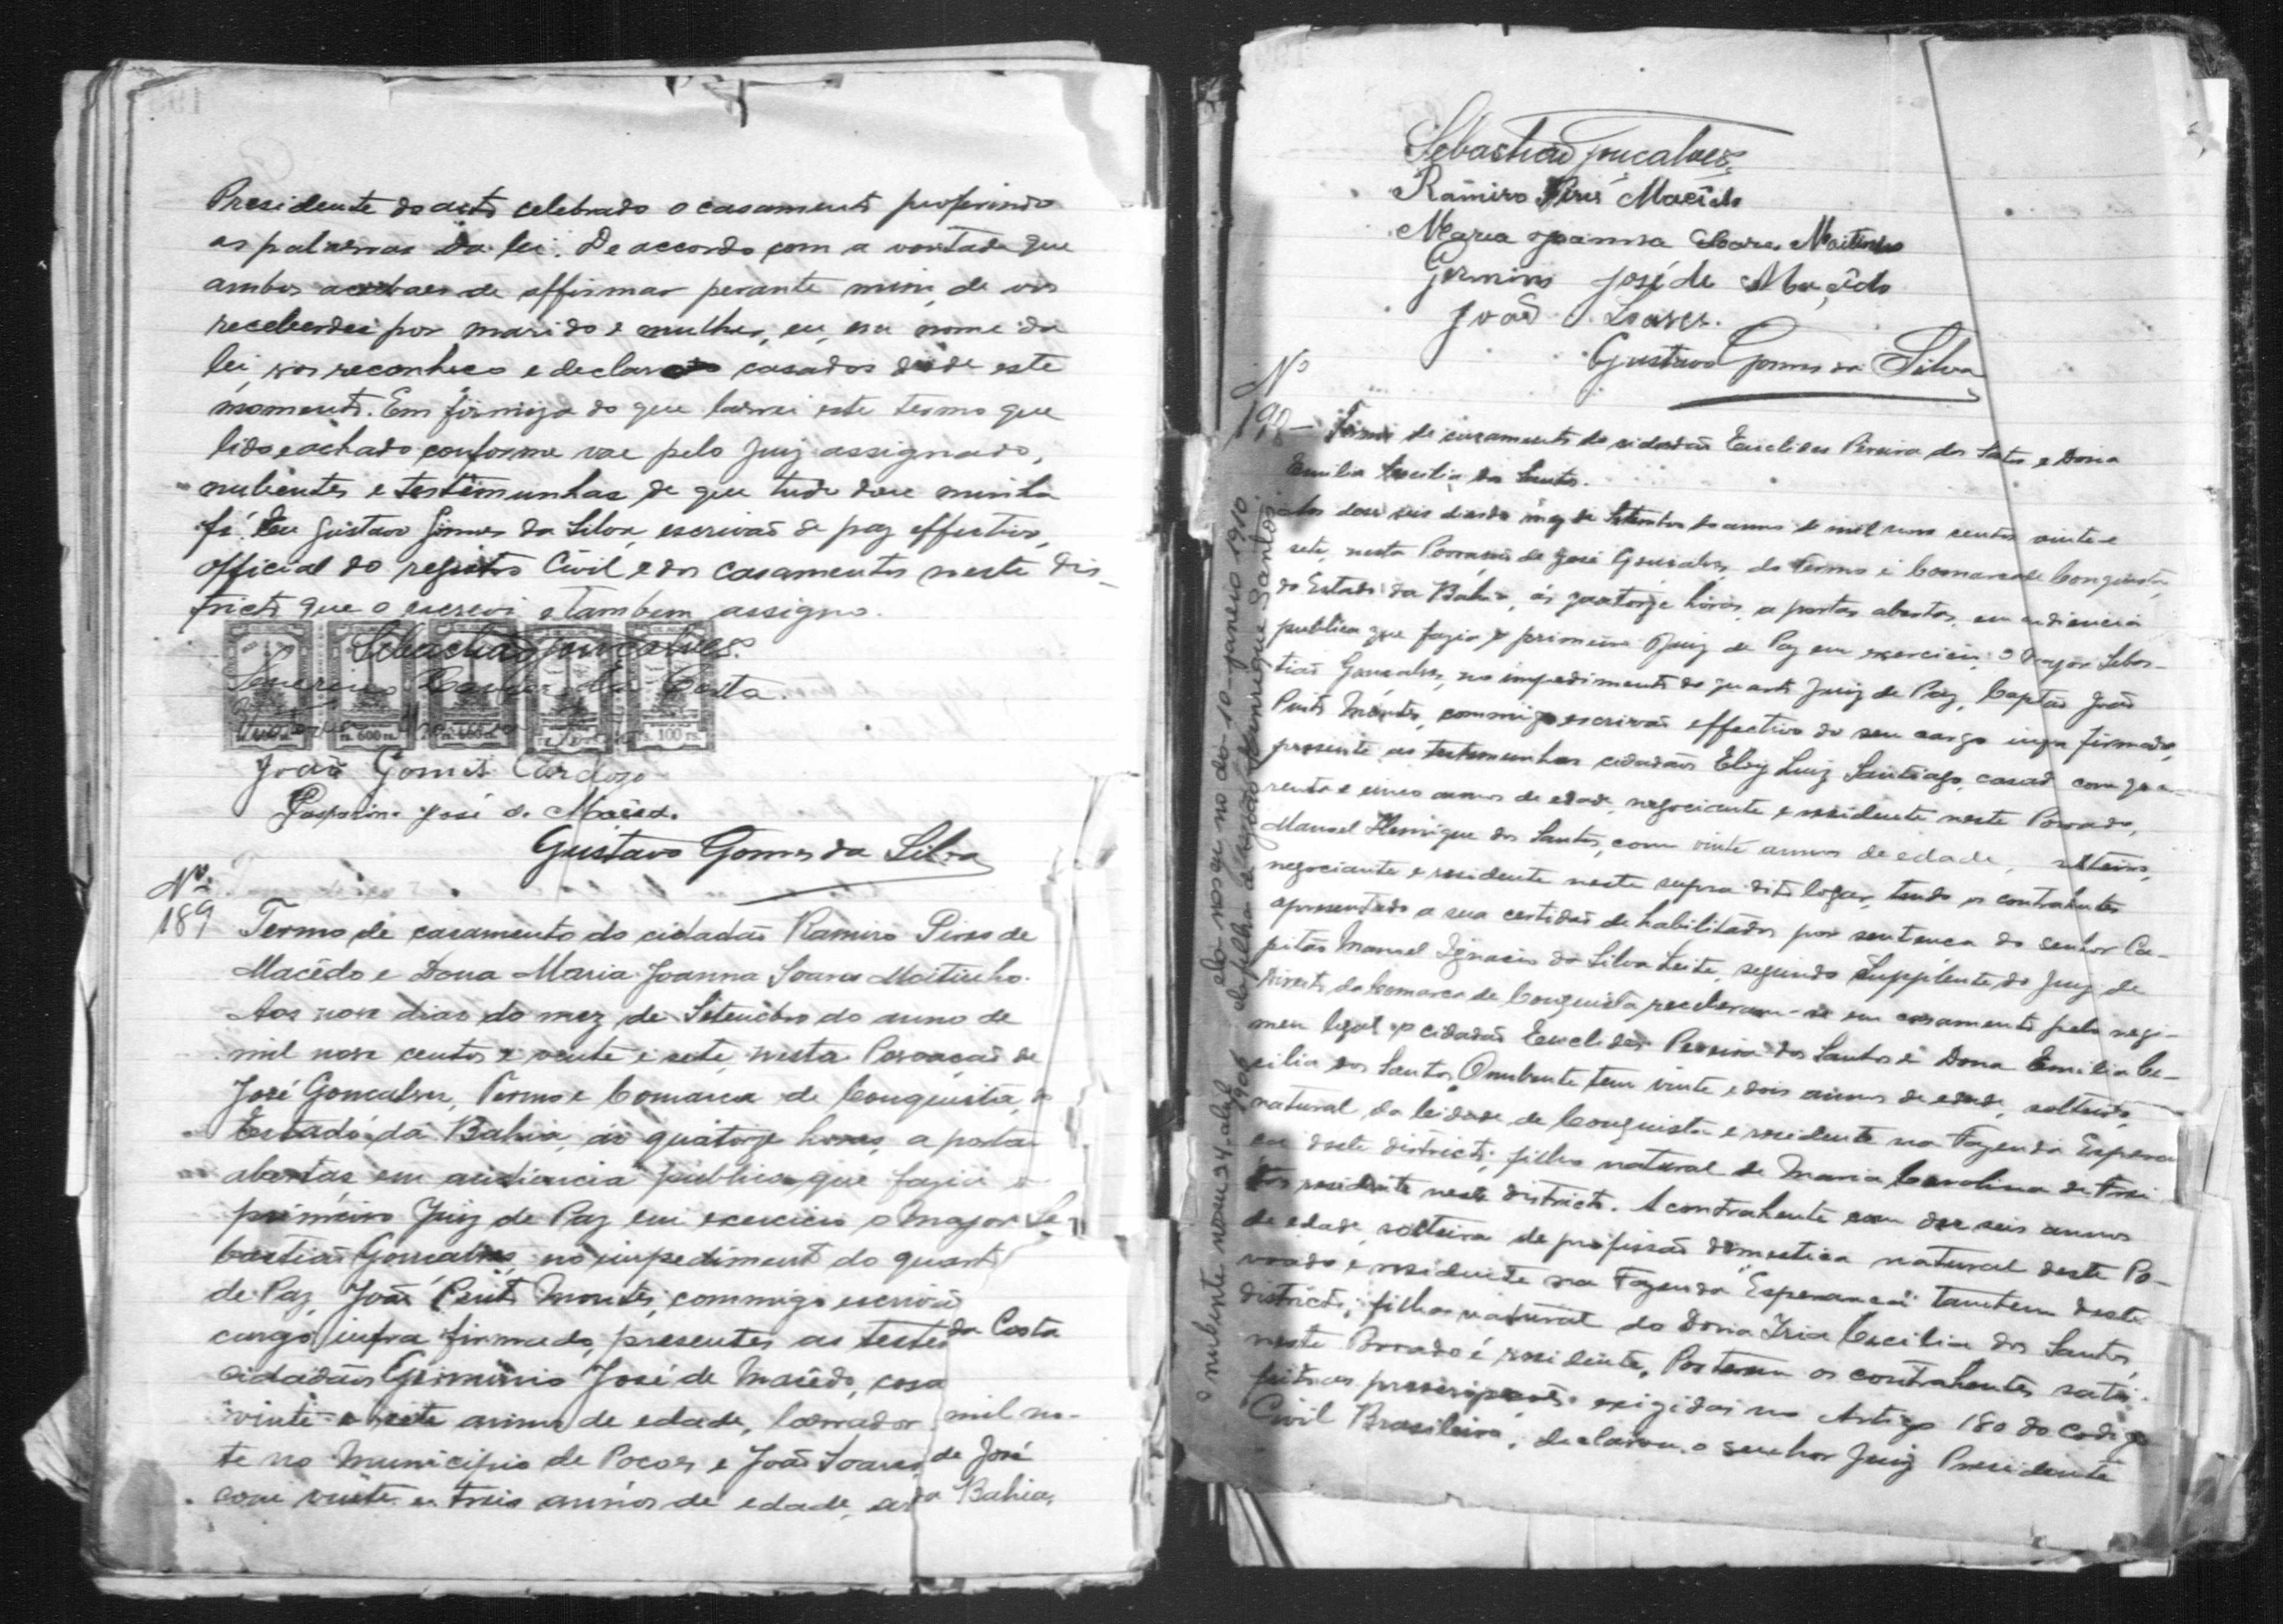 Presidente do acto celebrado o casamento proferindo
as palavras da lei. De accordo com a vontade que
ambos acabaes de affirmar perante mim, de vos
receberdes por marido e mulher, eu, em nome da
lei, vos reconheço e declaro casados desde este
momento. Em firmeza do que lavrei este termo que
lido e achado conforme vae pelo Juiz assignado,
nubentes e testemunhas, de que tudo dou minha
fé. Eu Gustavo Gomes da Silva, escrivão de paz effectivo,
official do registro Civil e dos casamentos neste dis-
tricto que o escrevi e tambem assigno.
Sebastião Gonçalves.
da Costa.
600 rs. 100 rs.
João Gomes Cardozo
José de Macêdo.
Gustavo Gomes da Silva
Nº
189 Termo de casamento do cidadão Ramiro Pires de
Macêdo e Dona Maria Joanna Soares Moitinho.
Aos nove dias do mez de Setembro do anno de
mil nove centos e vinte e sete, nesta Povoação de
José Gonçalves, Termo e Comarca de Conquista, do
Estado da Bahia, ás quatorze horas, a portas
abertas em audiencia publica que fazia o
primeiro Juiz de Paz em exercicio o Major Se-
bastião Gonçalves, no impedimento do quarto
de Paz, João Pinto Montes, commigo escrivão
cargo infra firmado, presentes as teste da Costa
cidadãos Germinio José de Macêdo, casa
vinte e sete annos de edade, lavrador mil no-
te no Municipio de Poções e João Soares, de José
com vinte e treis annos de edade, da Bahia,
Sebastião Gonçalves.
Ramiro Pires Macêdo
Maria Joanna Soares Moitinho
Germinio José de Macêdo
João S. Soares.
Gustavo Gomes da Silva
Nº
190 — Termo de casamento do cidadão Euclides Pereira dos Santos e Dona
Emilia Cecilia dos Santos.
Aos doze seis dias do mez de Setembro do anno de mil nove centos vinte e
sete, nesta Povoação de José Gonçalves, do Termo e Comarca de Conquista,
do Estado da Bahia, ás quatorze horas, a portas abertas, em audiencia
publica que fazia o primeiro Juiz de Paz em exercicio, o Major Sebas-
tião Gonçalves, no impedimento do quarto Juiz de Paz, Capitão João
Pinto Montes, commigo escrivão effectivo do seu cargo infra firmado,
presente as testemunhas cidadãos Eloy Luiz Santiago, casado com qua-
renta e cinco annos de edade, negociante e residente neste Povoado,
Manoel Henrique dos Santos, com vinte annos de edade, solteiro,
negociante e residente neste supra dito logar, tendo os contrahentes
apresentado a sua certidão de habilitados por sentença do senhor Ca-
pitão Manuel Ignacio da Silva Leite, segundo Supplente do Juiz de
Direito da Comarca de Conquista receberam-se em casamento pelo regi-
men legal o cidadão Euclides Pereira dos Santos e Dona Emilia Ce-
cilia dos Santos. O nubente tem vinte e dois annos de edade, solteiro,
natural da Cidade de Conquista e residente na Fazenda Esperan
ça deste districto, filho natural de Maria Carolina de
residente neste districto. A contrahente com doze seis annos
de edade, solteira de profissão domestica natural deste Po-
voado e residente na Fazenda "Esperança" tambem deste
districto, filha natural de Dona Iria Cecilia dos Santos,
neste Povoado é residente. Postaram os contrahentes satis-
feitas as prescripções exigidas no Artigo 180 do Codigo
Civil Brasileiro, declarou o senhor Juiz Presidente
o nubente nasceu 24 abril 1905
ela nasceu no dia 10 janeiro 1910
Henrique Santos.